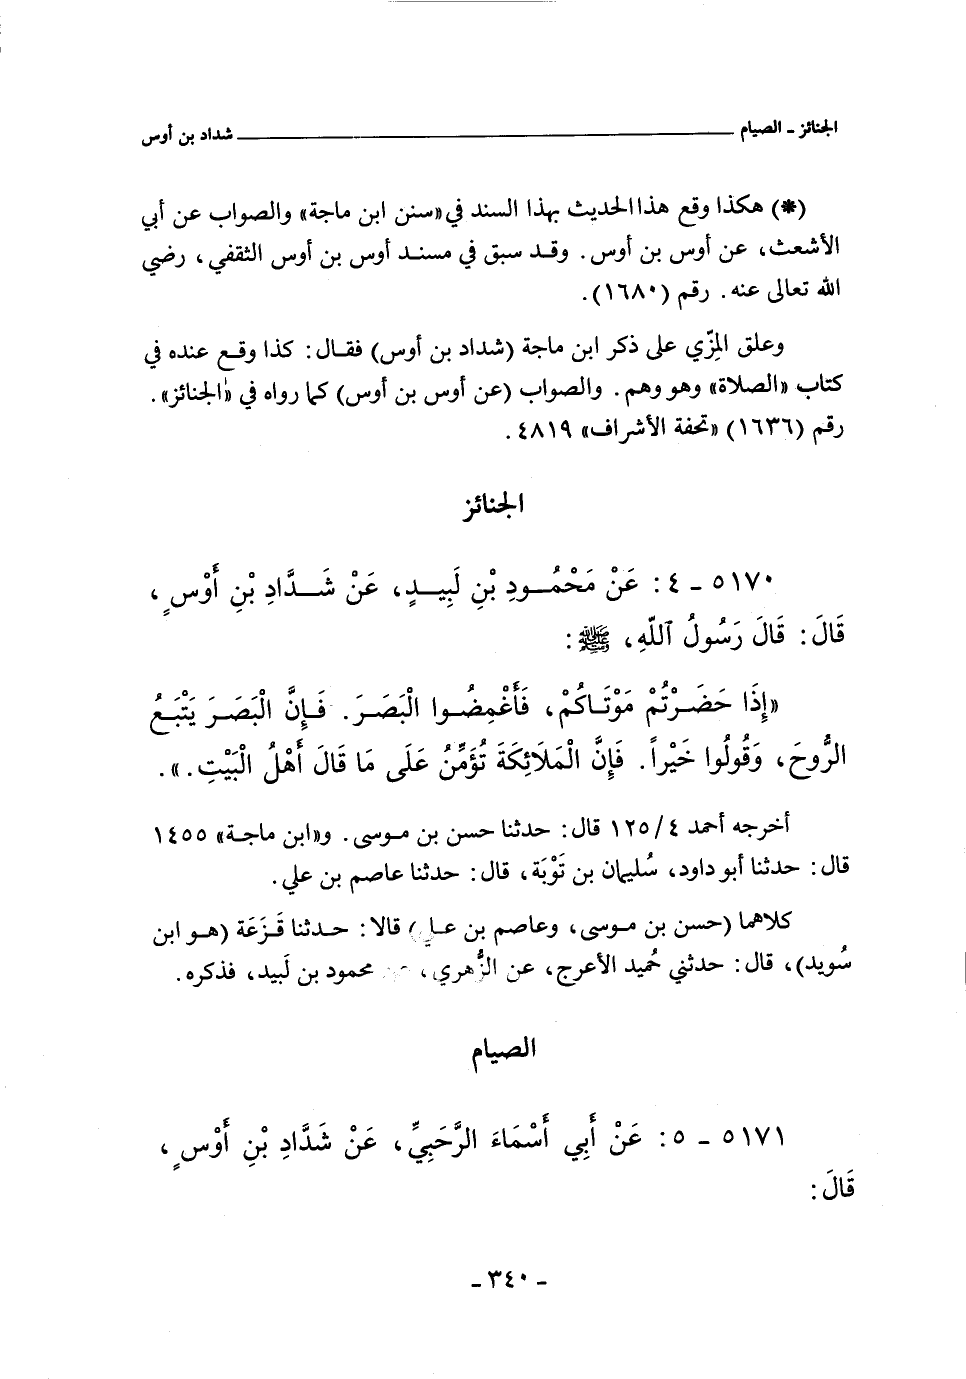 الجنائز - الصيام ــــــــــ شداد بن أوس
(*) هكذا وقع هذا الحديث بهذا السند في «سنن ابن ماجة» والصواب عن أبي
الأشعث، عن أوس بن أوس. وقد سبق في مسند أوس بن أوس الثقفي، رضي
الله تعالى عنه. رقم (١٦٨٠).
وعلق المِزّي على ذكر ابن ماجة (شداد بن أوس) فقال: كذا وقع عنده في
كتاب «الصلاة» وهو وهم. والصواب (عن أوس بن أوس) كما رواه في «الجنائز».
رقم (١٦٣٦) «تحفة الأشراف» ٤٨١٩.
الجنائز
٥١٧٠ - ٤: عَنْ مَحْمُودِ بْنِ لَبِيدٍ، عَنْ شَدَّادِ بْنِ أَوْسٍ،
قَالَ: قَالَ رَسُولُ ٱللَّهِ، ﷺ:
«إِذَا حَضَرْتُمْ مَوْتَاكُمْ، فَأَغْمِضُوا الْبَصَرَ. فَإِنَّ الْبَصَرَ يَتْبَعُ
الرُّوحَ، وَقُولُوا خَيْراً. فَإِنَّ الْمَلَائِكَةَ تُؤَمِّنُ عَلَى مَا قَالَ أَهْلُ الْبَيْتِ.».
أخرجه أحمد ٤/١٢٥ قال: حدثنا حسن بن موسى. و«ابن ماجة» ١٤٥٥
قال: حدثنا أبو داود، سُليمان بن تَوْبَة، قال: حدثنا عاصم بن علي.
كلاهما (حسن بن موسى، وعاصم بن علي) قالا: حدثنا قَزَعَة (هو ابن
سُويد)، قال: حدثني حُميد الأعرج، عن الزُّهري، عن محمود بن لَبيد، فذكره.
الصيام
٥١٧١ - ٥: عَنْ أَبِي أَسْمَاءَ الرَّحَبِيِّ، عَنْ شَدَّادِ بْنِ أَوْسٍ،
قَالَ:
- ٣٤٠ -